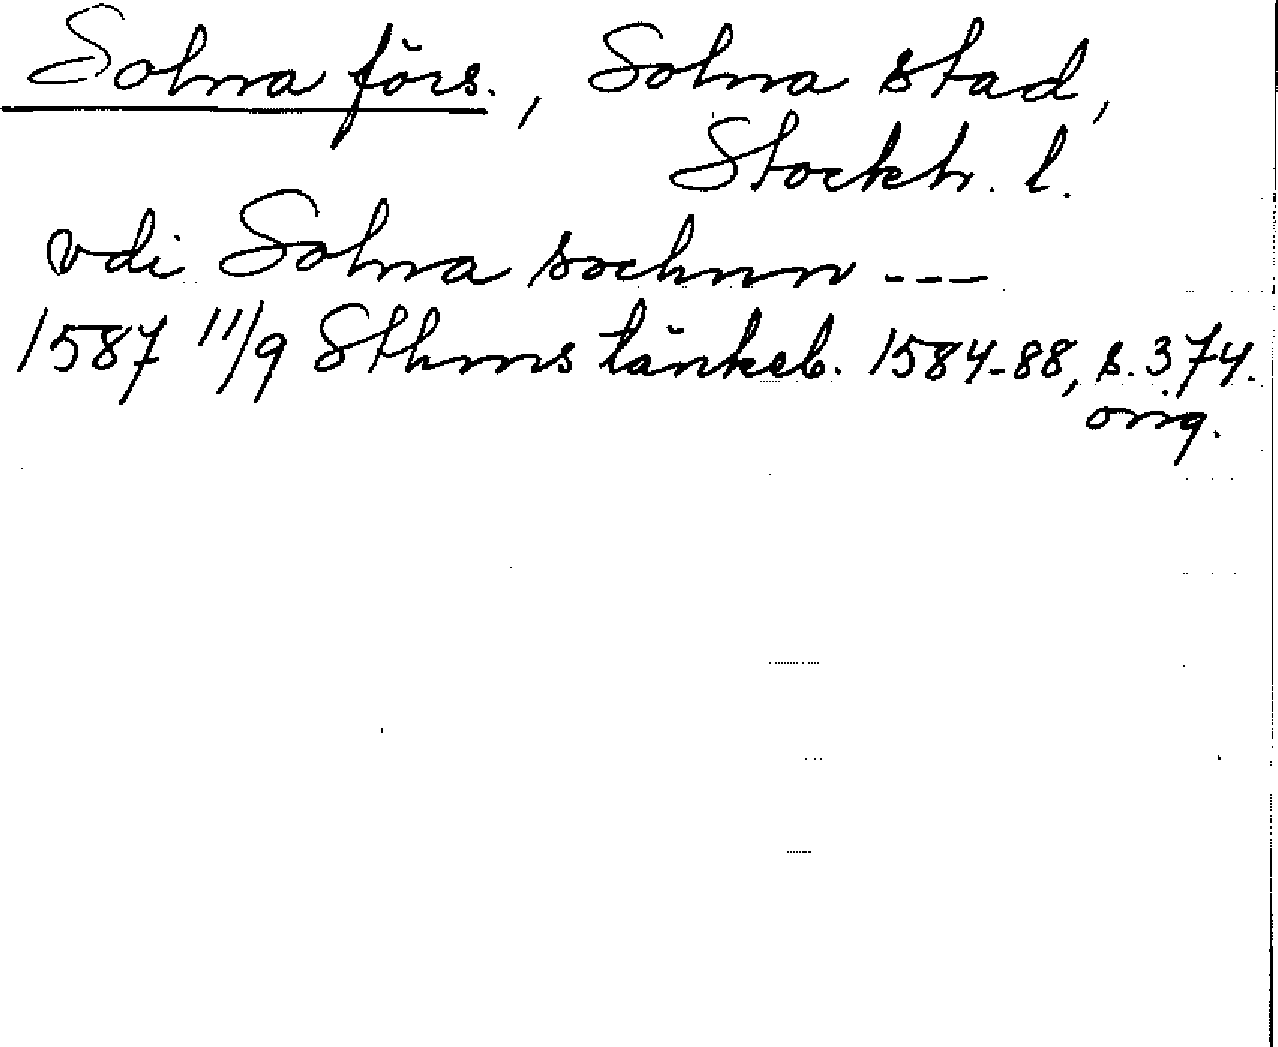 Solna förs., Solna stad,
Stockh. l.
vdi Solna sochnnn ---
1587 11/9 Sthms tänkeb. 1584-88, s. 374.
orig.